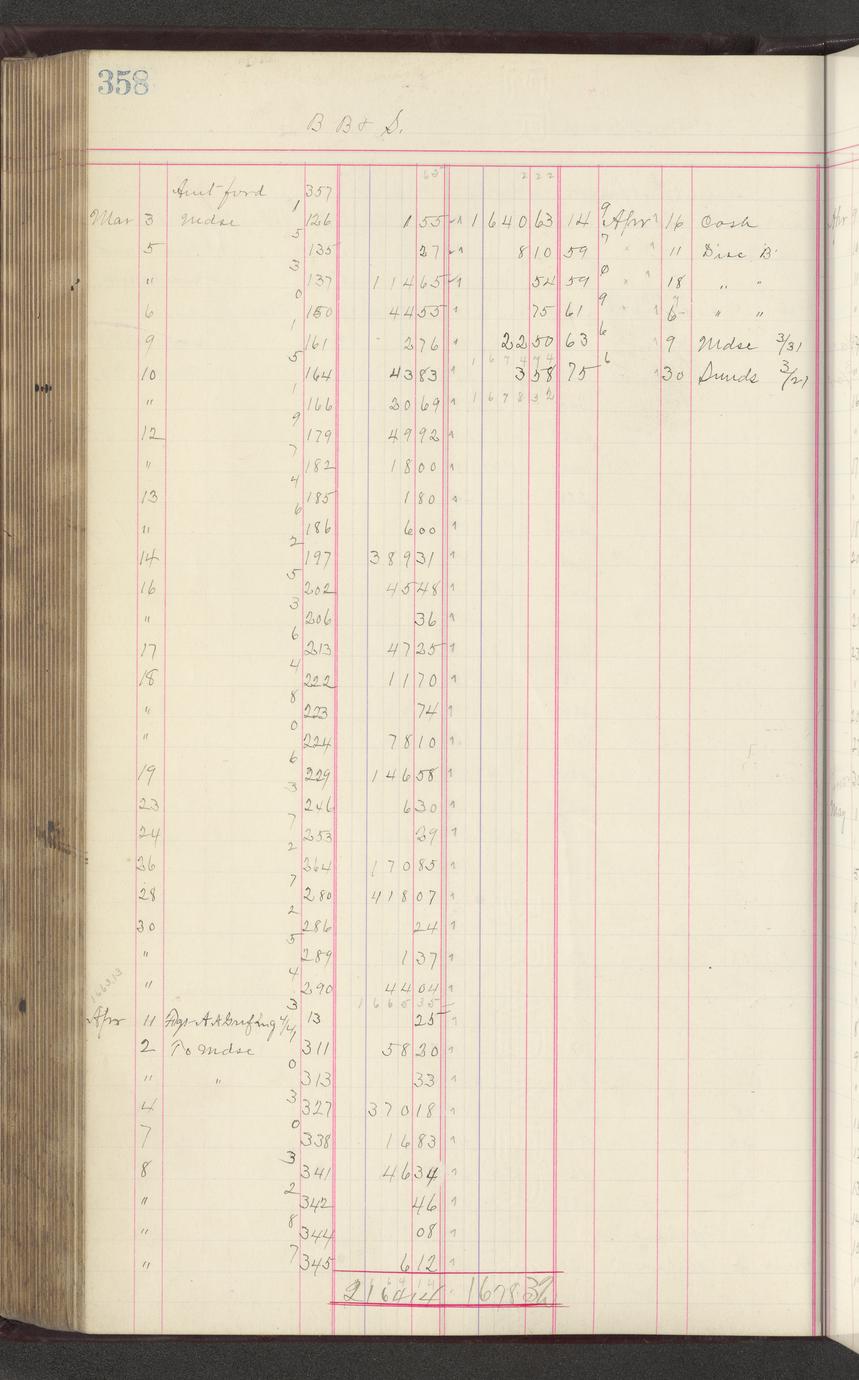 358
B B & S.
63 222
Amt ford 357
Mar 3 Mdse 1 126 1 55 1640 63 14 9 Apr 16 Cash
5 5 135 27 8 10 59 7 " 11 Disc B
" 3 137 114 65 54 59 0 " 18 " "
6 0 150 44 55 75 61 9 " 6 " "
9 1 161 2 76 22 50 63 6 9 Mdse 3/31
1674 74
10 5 164 43 83 3 58 75 6 30 Sunds 3/21
" 1 166 30 69 1678 32
12 9 179 49 92
" 7 182 18 00
13 4 185 1 80
" 6 186 6 00
14 2 197 389 31
16 5 202 45 48
" 3 206 36
17 6 213 47 25
18 4 222 11 70
" 8 223 74
" 0 224 78 10
19 6 229 146 58
23 3 246 6 30
24 7 253 39
26 2 264 170 85
28 7 280 418 07
30 2 286 24
" 5 289 1 37
" 4 290 44 04
1665 35
Apr 11 4/4 3 13 25
2 To Mdse 311 58 30
" " 0 313 33
4 3 327 370 18
7 0 338 16 83
8 3 341 46 34
" 2 342 46
" 8 344 08
" 7 345 6 12
2164 14 1678 32